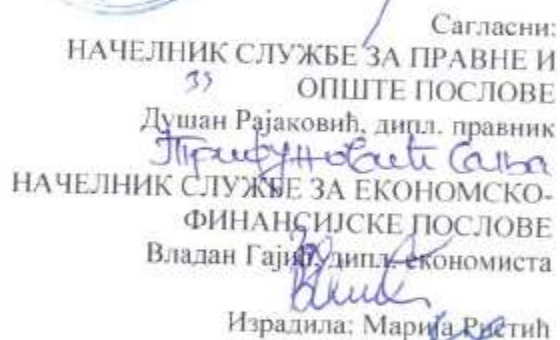 Сагласни:
НАЧЕЛНИК СЛУЖБЕ ЗА ПРАВНЕ И
за
ОПШТЕ ПОСЛОВЕ
Душан Рајаковић, дипл. правник
Трифуновић Сања
НАЧЕЛНИК СЛУЖБЕ ЗА ЕКОНОМСКО-
ФИНАНСИЈСКЕ ПОСЛОВЕ
Владан Гајић, дипл. економиста
Израдила: Марија Ристић